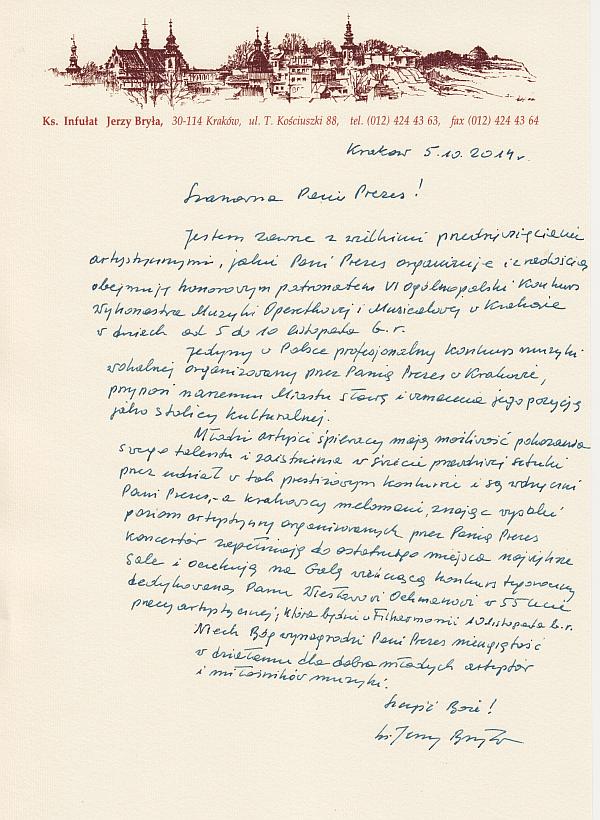 Ks. Infułat Jerzy Bryła, 30-114 Kraków, ul. T. Kościuszki 88, tel. (012) 424 43 63, fax (012) 424 43 64
Kraków 5.10.2014r.
Szanowna Pani Prezes!
Jestem zawsze z wielkimi przedsięwzięciami
artystycznymi, jakie Pani Prezes organizuje i z radością
obejmuję honorowym patronatem VI Ogólnopolski Konkurs
Wykonawstwa Muzyki Operetkowej i Musicalowej w Krakowie
w dniach od 5 do 10 listopada b.r.
Jedyny w Polsce profesjonalny konkurs muzyki
wokalnej organizowany przez Panią Prezes w Krakowie,
przynosi naszemu Miastu sławę i wzmacnia jego pozycję
jako stolicy kulturalnej.
Młodzi artyści śpiewacy mają możliwość pokazania
swego talentu i zaistnienia w świecie prawdziwej sztuki
przez udział w tak prestiżowym konkursie i są wdzięczni
Pani Prezes, - a krakowscy melomani, znając wysoki
poziom artystyczny organizowanych przez Panią Prezes
koncertów zapełniają do ostatniego miejsca największe
sale i oczekują na Galę wieńczącą konkurs tegoroczny
dedykowaną Panu Wiesławowi Ochmanowi w 55 lecie
pracy artystycznej, która będzie w Filharmonii 10 listopada b.r.
Niech Bóg wynagrodzi Pani Prezes nieugiętość
w działaniu dla dobra młodych artystów
i miłośników muzyki.
Szczęść Boże!
ks. Jerzy Bryła